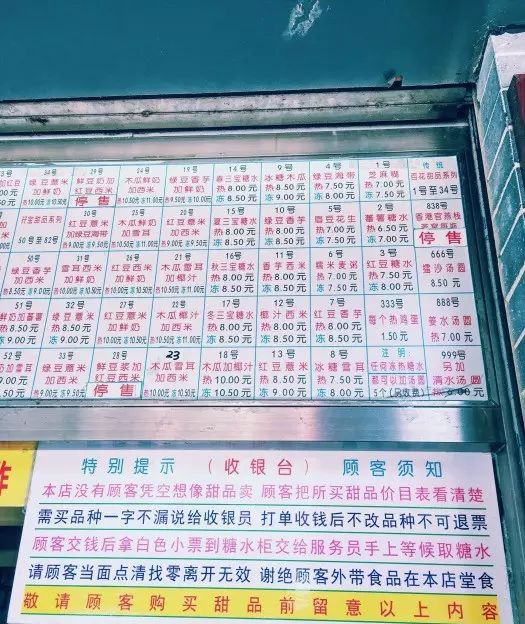 34号 29号 24号 19号 14号 9号 4号 1号 传统
加红豆 绿豆薏米 鲜豆奶加 木瓜鲜奶 绿豆香芋 春三宝糖水 冰糖木瓜 绿豆海带 芝麻糊 百花甜品系列
加鲜奶 红豆西米 加西米 加鲜奶 热 8.00 元 热 8.50 元 热 7.50 元 热 7.00 元 1号至34号
停售 热10.50元 冻11.00元 热9.00元 冻9.50元 冻 8.50 元 冻 9.00 元 冻 8.00 元 冻 7.50 元
好密甜品系列 30号 25号 20号 15号 10号 5号 2号 838号
绿豆海带 红豆薏米 木瓜西米 红豆香芋 夏三宝糖水 绿豆薏米 眉豆花生 蕃薯糖水 香港官燕栈
50号至82号 加鲜奶 加鲜奶 加鲜奶 热 8.00 元 热 8.00 元 热 7.50 元 热 6.50 元
冻 8.50 元 冻 8.50 元 冻 8.00 元 冻 7.00 元 停售
50号 31号 26号 21号 16号 11号 6号 3号 666号
绿豆香芋 雪耳西米 红豆西米 木瓜雪耳 秋三宝糖水 香芋西米 糯米麦粥 红豆糖水 擂沙汤圆
加西米 加椰汁 加鲜奶 加椰汁 热 8.00 元 热 8.00 元 热 7.50 元 热 7.00 元 8.50 元
冻 8.50 元 冻 8.50 元 冻 8.00 元 冻 7.50 元
51号 32号 27号 22号 17号 12号 7号 333号 888号
鲜奶加蕃薯 绿豆西米 红豆薏米 木瓜西米 冬三宝糖水 椰汁西米 红豆香芋 每个热鸡蛋 姜水汤圆
热 8.50 元 加鲜奶 加鲜奶 加椰汁 热 8.00 元 热 8.00 元 热 8.00 元 1.50 元 热 7.00 元
冻 9.00 元 冻 8.50 元 冻 8.50 元 冻 8.50 元
52号 33号 28号 23 18号 13号 8号 注明: 999号
加雪耳 绿豆薏米 鲜豆浆加 木瓜雪耳 木瓜加椰汁 红豆薏米 冰糖雪耳 任何冻热糖水 另加
加西米 红豆西米 加鲜奶 热 10.00 元 热 8.00 元 热 8.50 元 都可以加汤圆 清水汤圆
停售 冻 10.50 元 冻 8.50 元 冻 9.00 元 5个(另收费) 热 6.00 元
特别提示 (收银台) 顾客须知
本店没有顾客凭空想像甜品卖 顾客把所买甜品价目表看清楚
需买品种一字不漏说给收银员 打单收钱后不改品种不可退票
顾客交钱后拿白色小票到糖水柜交给服务员手上等候取糖水
请顾客当面点清找零离开无效 谢绝顾客外带食品在本店堂食
敬请顾客购买甜品前留意以上内容